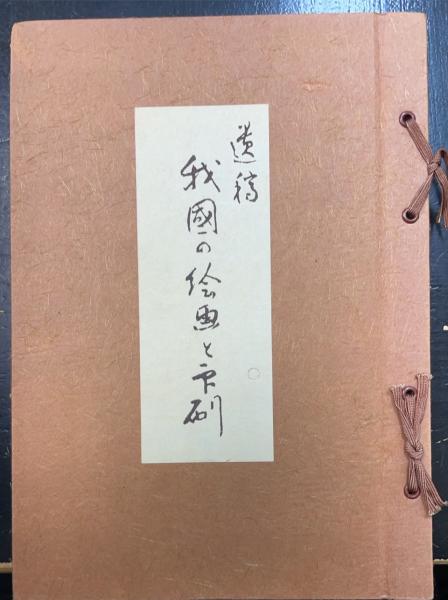 遺稿
我國の絵画と印刷